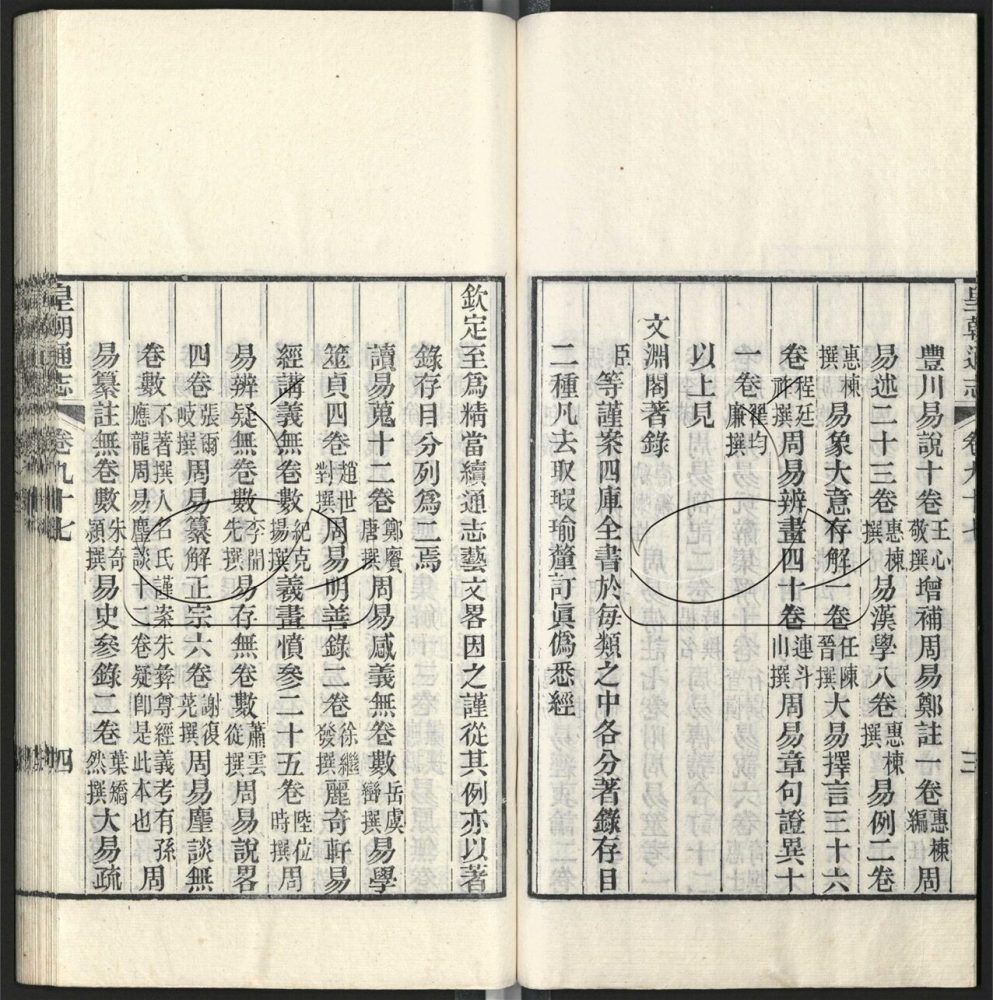 皇朝通志 卷九十七 三
豐川易說十卷王心敬撰增補周易鄭註一卷惠棟編周
易述二十三卷惠棟撰易漢學八卷惠棟撰易例二卷
惠棟撰易象大意存解一卷任陳晉撰大易擇言三十六
卷程廷祚撰周易辨畫四十卷連斗山撰周易章句證異十
一卷翟均廉撰
以上見
文淵閣著錄
臣等謹案四庫全書於每類之中各分著錄存目
二種凡去取瑕瑜釐訂眞僞悉經
欽定至爲精當續通志藝文畧因之謹從其例亦以著
錄存目分列爲二焉
讀易蒐十二卷鄭賡唐撰周易感義無卷數岳虞巒撰易學
筮貞四卷趙世對撰周易明善錄二卷徐繼發撰麗奇軒易
經講義無卷數紀克揚撰義畫憤參二十五卷陸位時撰周
易辨疑無卷數李開先撰易存無卷數蕭雲從撰周易說畧
四卷張爾岐撰周易纂解正宗六卷謝復茺撰周易塵談無
卷數不著撰人名氏謹案朱彝尊經義考有孫應龍周易塵談十二卷疑卽是此本也周
易纂註無卷數朱奇穎撰易史參錄二卷葉矯然撰大易疏
皇朝通志 卷九十七 四